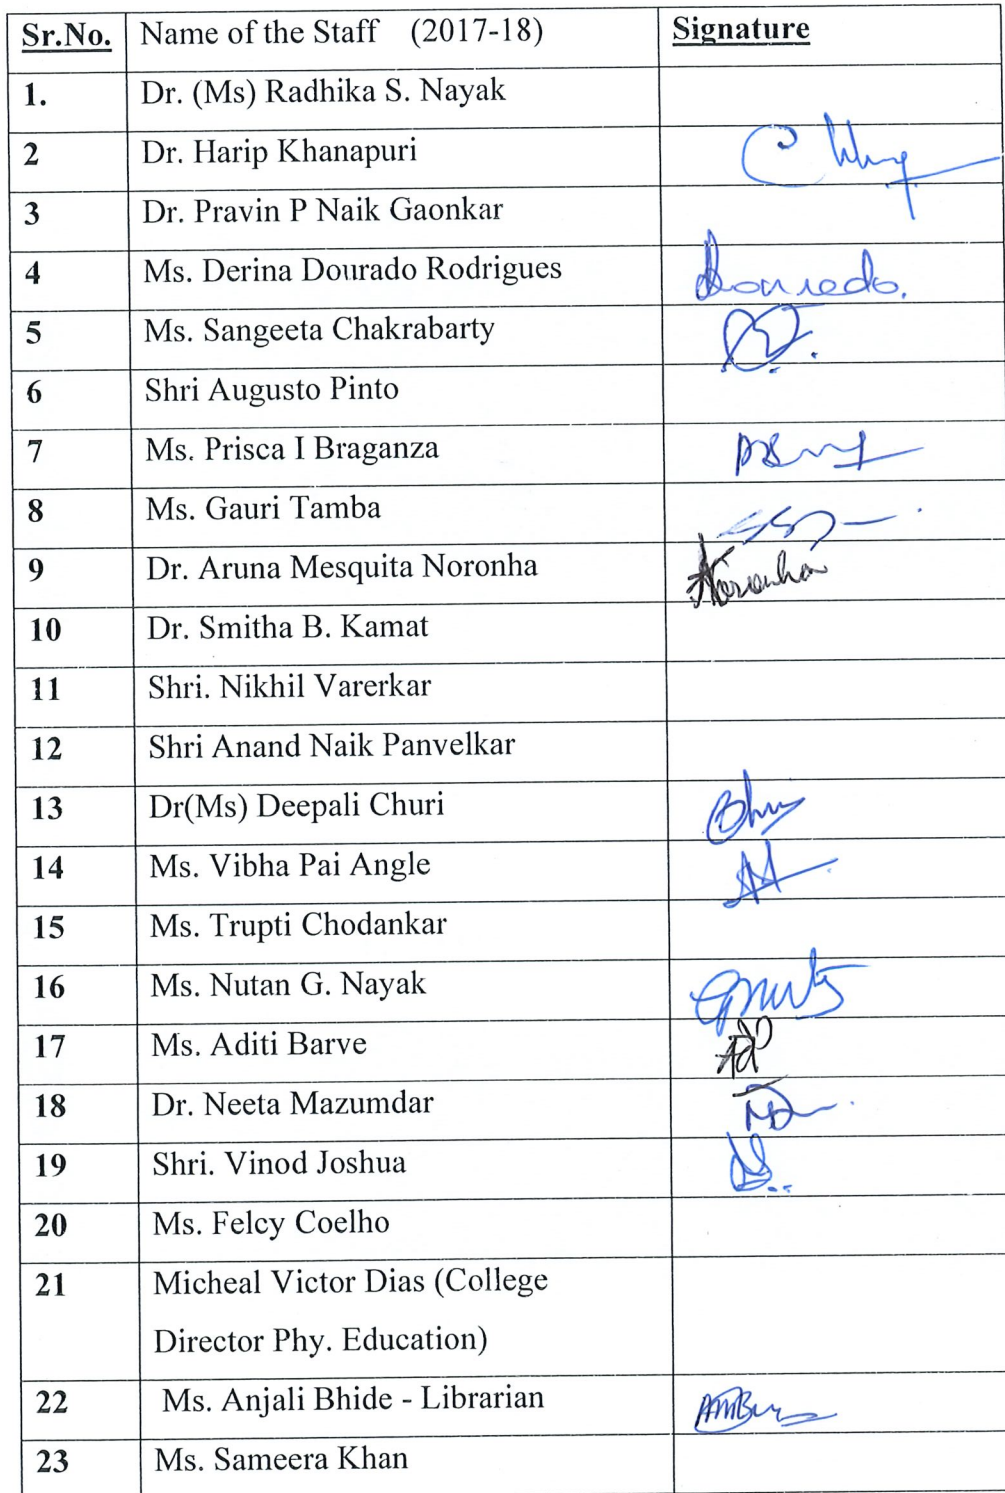 Sr.No. Name of the Staff (2017-18) Signature
1. Dr. (Ms) Radhika S. Nayak
2 Dr. Harip Khanapuri
3 Dr. Pravin P Naik Gaonkar
4 Ms. Derina Dourado Rodrigues Dourado.
5 Ms. Sangeeta Chakrabarty
6 Shri Augusto Pinto
7 Ms. Prisca I Braganza
8 Ms. Gauri Tamba
9 Dr. Aruna Mesquita Noronha Noronha
10 Dr. Smitha B. Kamat
11 Shri. Nikhil Varerkar
12 Shri Anand Naik Panvelkar
13 Dr(Ms) Deepali Churi
14 Ms. Vibha Pai Angle
15 Ms. Trupti Chodankar
16 Ms. Nutan G. Nayak
17 Ms. Aditi Barve
18 Dr. Neeta Mazumdar
19 Shri. Vinod Joshua
20 Ms. Felcy Coelho
21 Micheal Victor Dias (College
Director Phy. Education)
22 Ms. Anjali Bhide - Librarian
23 Ms. Sameera Khan